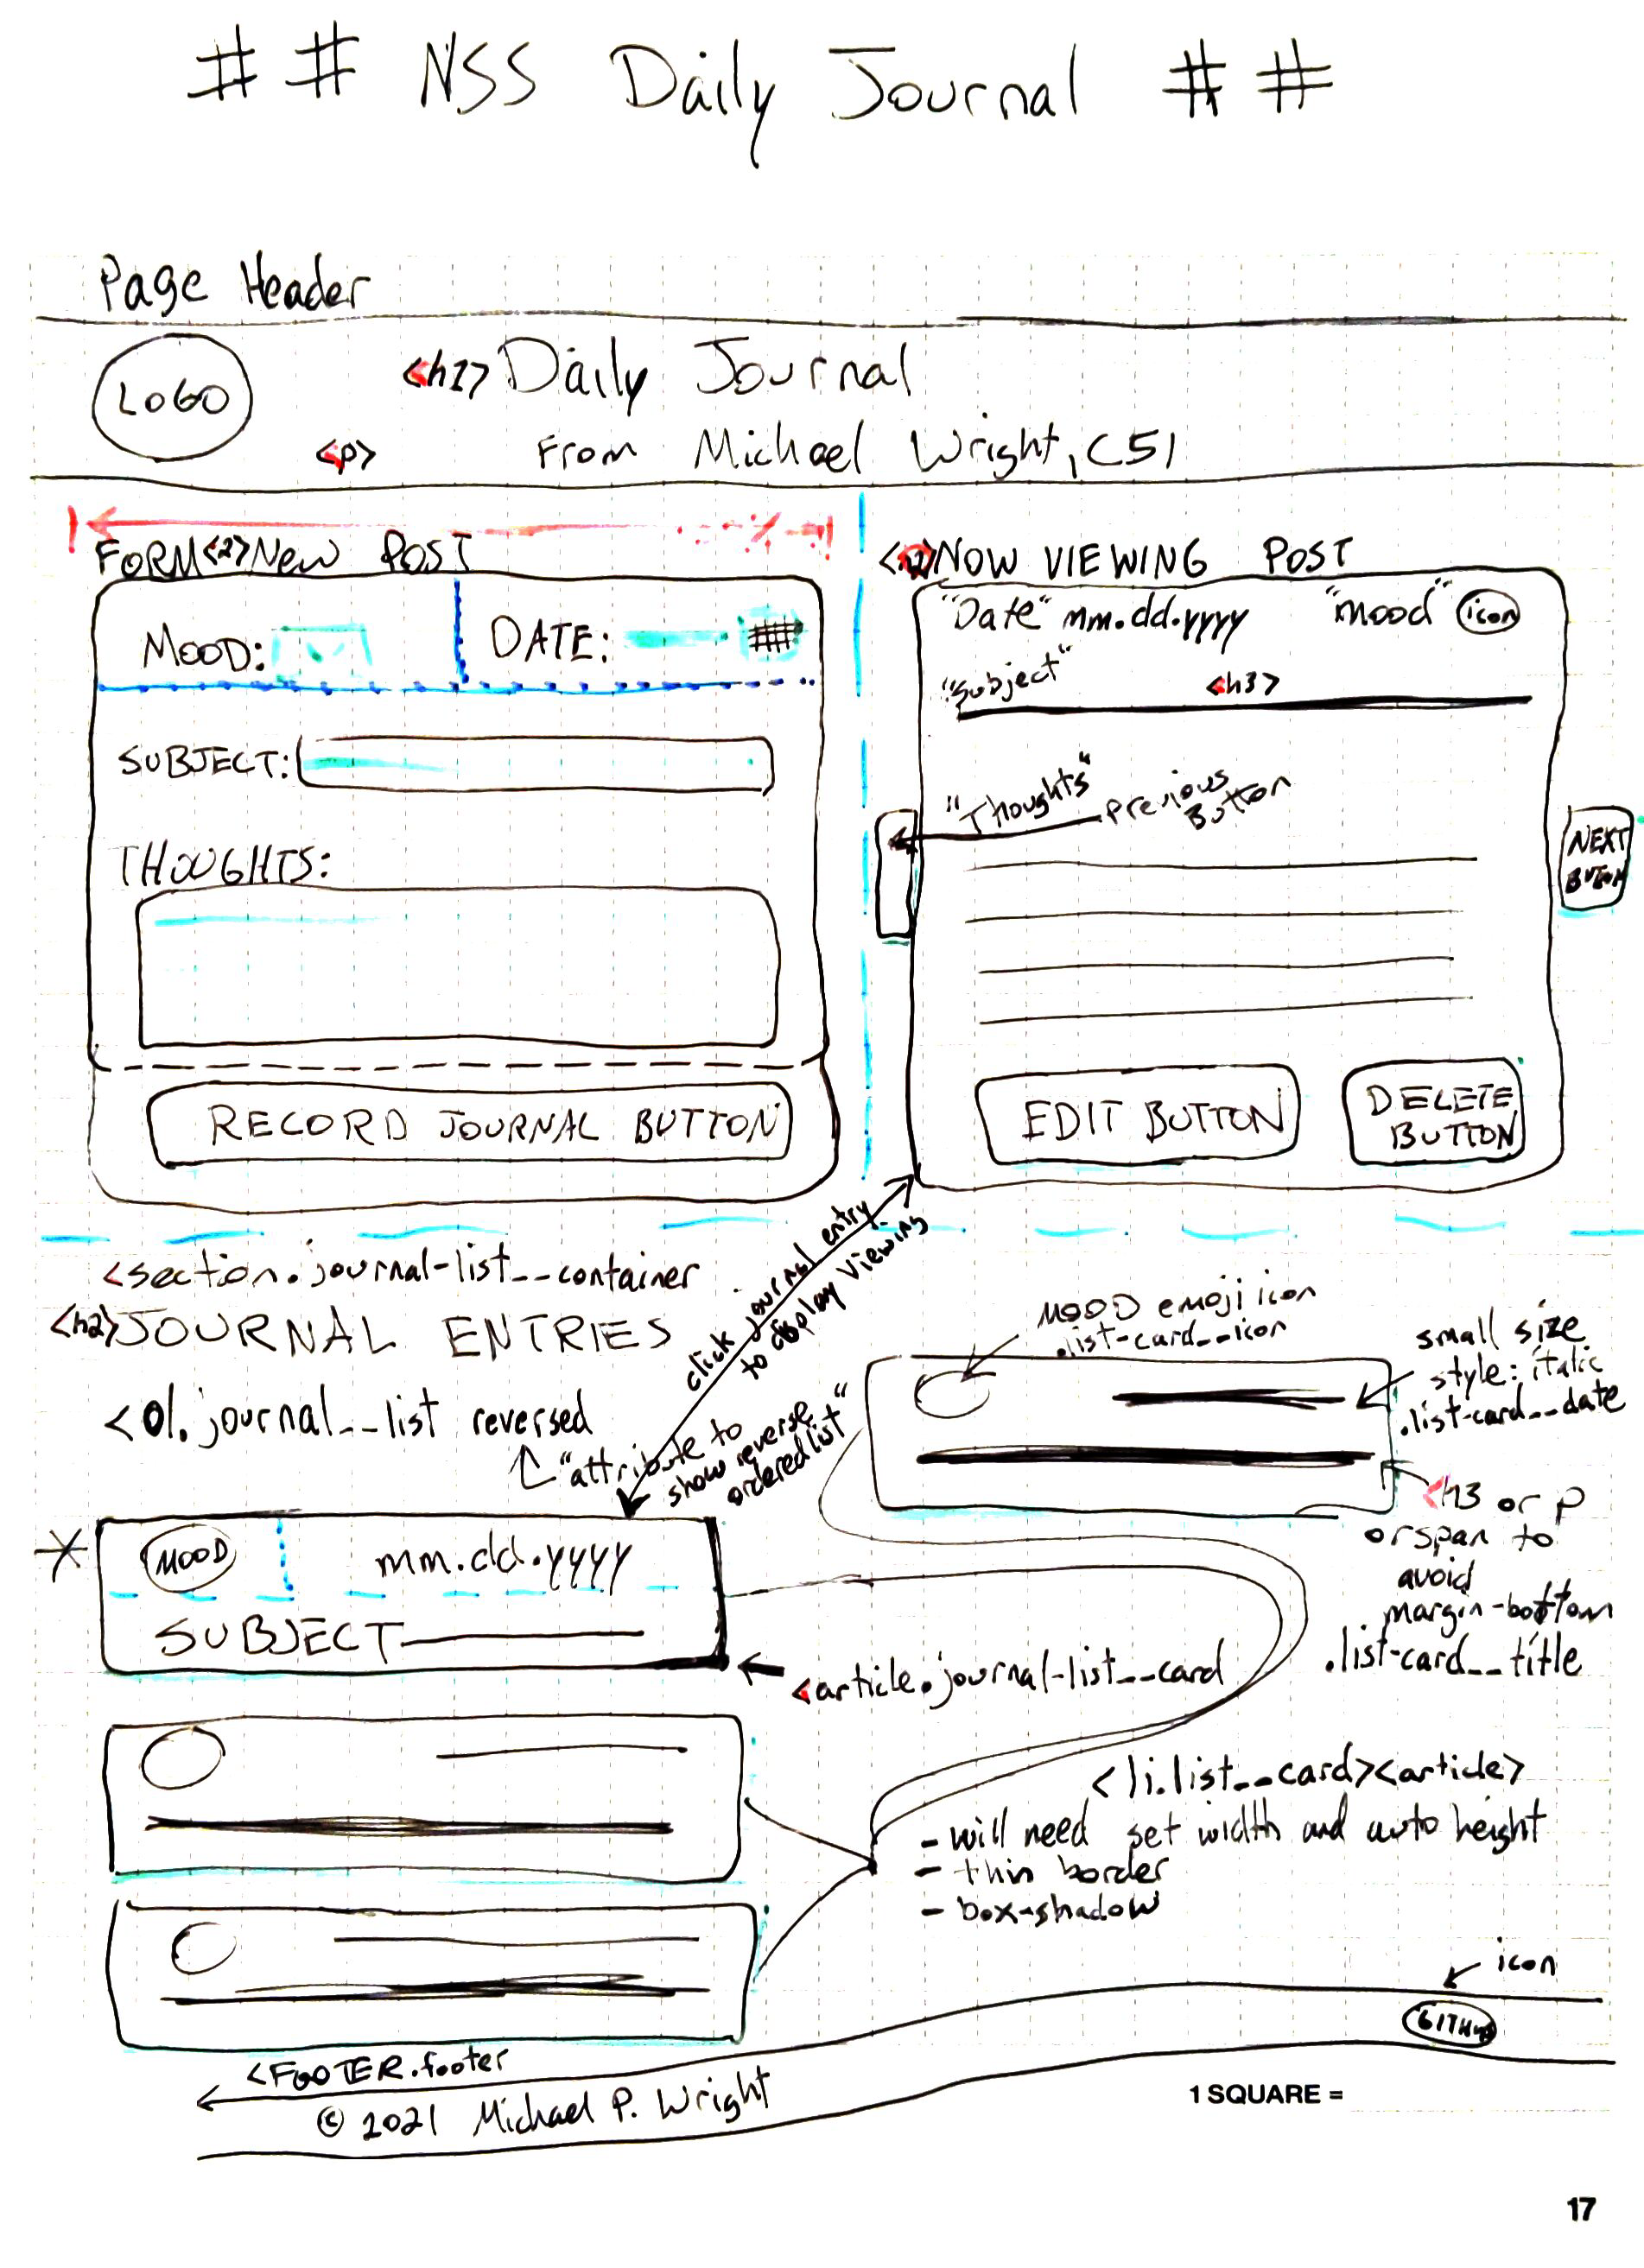 # # NSS Daily Journal # #
Page Header
LOGO
<h1> Daily Journal
<p> From Michael Wright, C51
FORM <2> New POST
MOOD:
DATE:
SUBJECT:
THOUGHTS:
RECORD JOURNAL BUTTON
NOW VIEWING POST
"Date" mm.dd.yyyy "mood" icon
"Subject" <h3>
"Thoughts"
Previous
Button
NEXT
BUTTON
EDIT BUTTON
DELETE
BUTTON
click journal entry
to display viewing
<section.journal-list__container
<h2> JOURNAL ENTRIES
<ol.journal__list reversed
"attribute to
show reverse
ordered list"
MOOD emoji icon
.list-card__icon
small size
style: italic
.list-card__date
<h3 or p
or span to
avoid
margin-bottom
.list-card__title
MOOD mm.dd.yyyy
SUBJECT
<article.journal-list__card
<li.list__card><article>
- will need set width and auto height
- thin border
- box-shadow
icon
GITHUB
<FOOTER.footer
© 2021 Michael P. Wright
1 SQUARE =
17